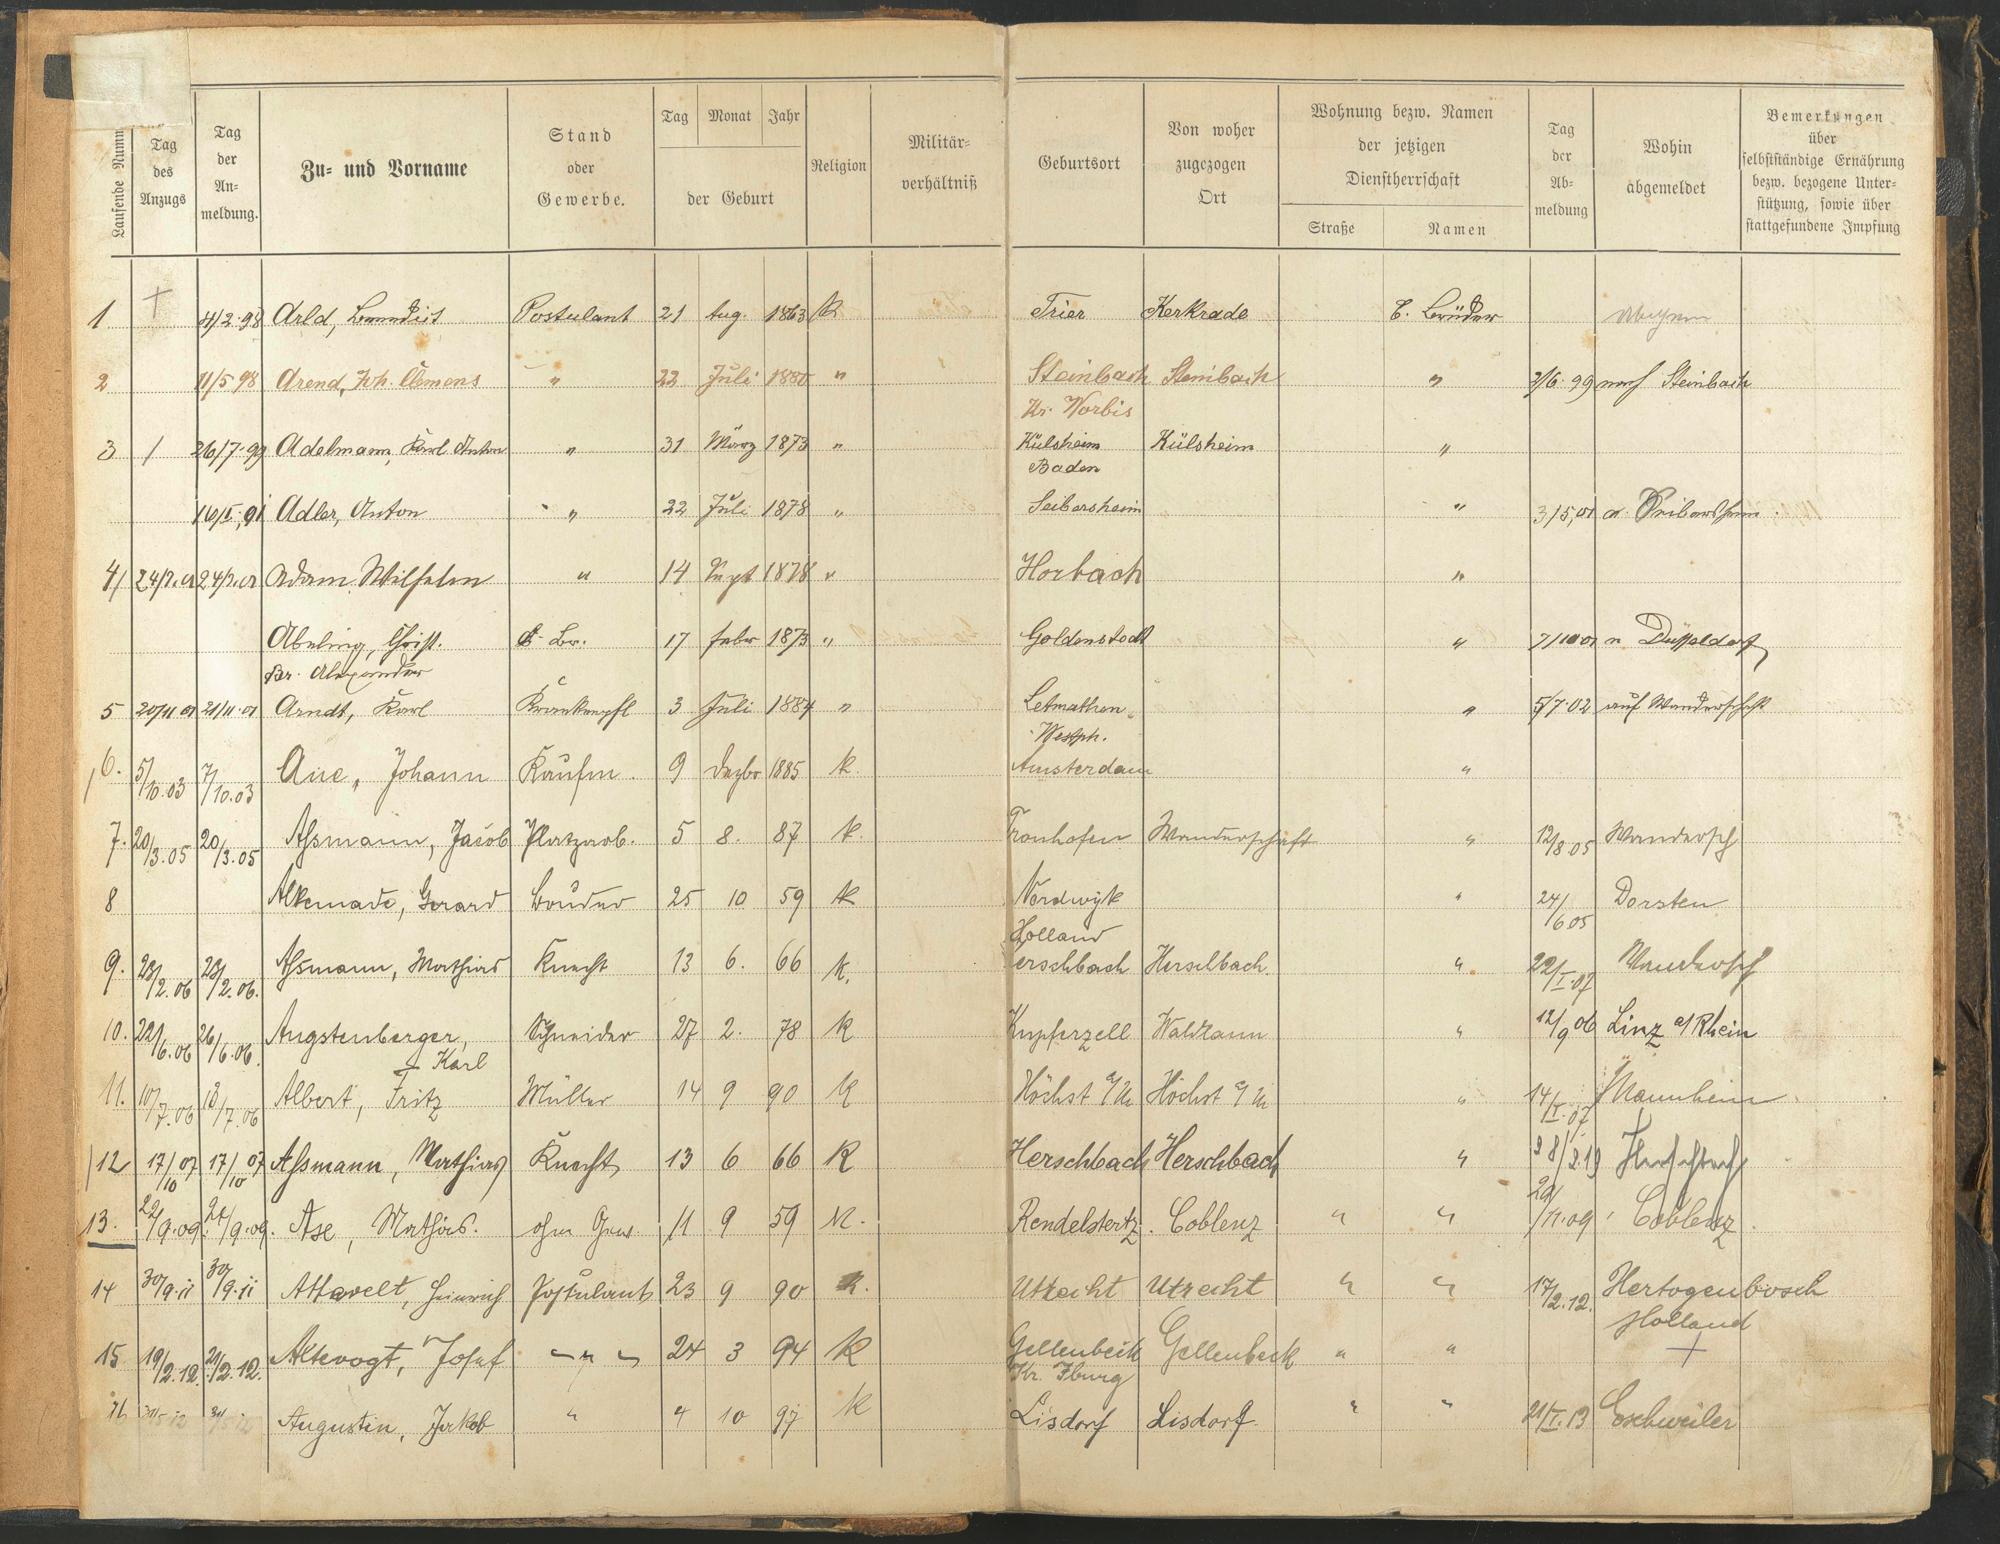 Laufende Numm
Tag des Anzugs
Tag der Anmeldung.
Zu- und Vorname
Stand oder Gewerbe.
Tag Monat Jahr
der Geburt
Religion
Militär-
verhältniß
Geburtsort
Von woher zugezogen Ort
Wohnung bezw. Namen
der jetzigen
Dienstherrschaft
Straße Namen
Tag der Ab-
meldung
Wohin
abgemeldet
Bemerkungen
über
selbstständige Ernährung
bezw. bezogene Unter-
stützung, sowie über
stattgefundene Impfung
1 4/2.98 Arld, Postulant 21 Aug. 1863 k Trier Kerkrade B. Brüder
2 11/5 98 Arend, Joh. Clemens " 22 Juli 1880 " Steinbach Steinbach " 3/6.99 nach Steinbach
Kr. Worbis
3 / 26/7.99 Adelmann, Karl Anton " 31 März 1873 " Külsheim Külsheim "
Baden
Adler, Anton " 22 Juli 1878 " Seibersheim " 3/5,01
4/ 24/7.01 24/7.01 Adam Wilhelm " 14 Sept 1878 " Horbach "
Abeling, Christ. B. Br. 17 Febr 1873 " Goldenstedt " 7/10 01 n Düsseldorf
Br. Alexander
5 20/11 01 21/11.01 Arndt, Karl Krankenpfl 3 Juli 1884 " Letmathen " 5/7.02 auf Wanderschaft
Westph.
6. 5/10.03 7/10.03 Aue, Johann Kaufm. 9 Dezbr 1885 k. Amsterdam "
7. 20/3.05 20/3.05 Assmann, Jacob Platzarb. 5 8. 87 k. Fronhofen Wanderschaft " 12/8 05 Wandersch
8 Alkemade, Gerard Bruder 25 10 59 k Nordwijk " 24/6 05 Dorsten
Holland
9. 28/2.06 28/2.06. Assmann, Mathias Knecht 13 6. 66 k. Herschbach Herschbach. " 22/I.07 Wandersch
10. 22/6.06 26/6.06. Augstenberger, Schneider 27 2. 78 k Kupferzell Waldtann " 12/9 06 Linz a/Rhein
Karl
11. 10/7.06 18/7.06 Albert, Fritz Müller 14 9 90 k Höchst a/M Höchst a/M " 14/I.07 Mannheim
12 17/10 07 17/10 07 Assmann, Mathias Knecht 13 6 66 k Herschbach Herschbach " 28/2.19 Herschbach
13. 22/9.09. 24/9.09. Ase, Mathias. ohne Gew. 11 9 59 k. Rendelstertz. Coblenz " " 29/11.09 Coblenz
14 30/9.11 30/9.11 Attavelt, Heinrich Postulant 23 9 90 k. Utrecht Utrecht " " 17/2.12. Hertogenbosch
Holland
15 19/2.12. 20/2.12. Altevogt, Josef " 24 3 94 k Gellenbeck Gellenbeck " "
Kr. Iburg
16 Augustin, Jakob " 4 10 97 k Lisdorf Lisdorf. " " 21/I.13 Eschweiler